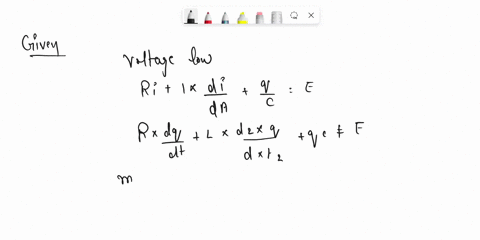 Givey
Voltage low
Ri + 1 × di/dA + q/C = E
R × dq/dt + L × d2 × q / d × t2 + qc ≠ E
m